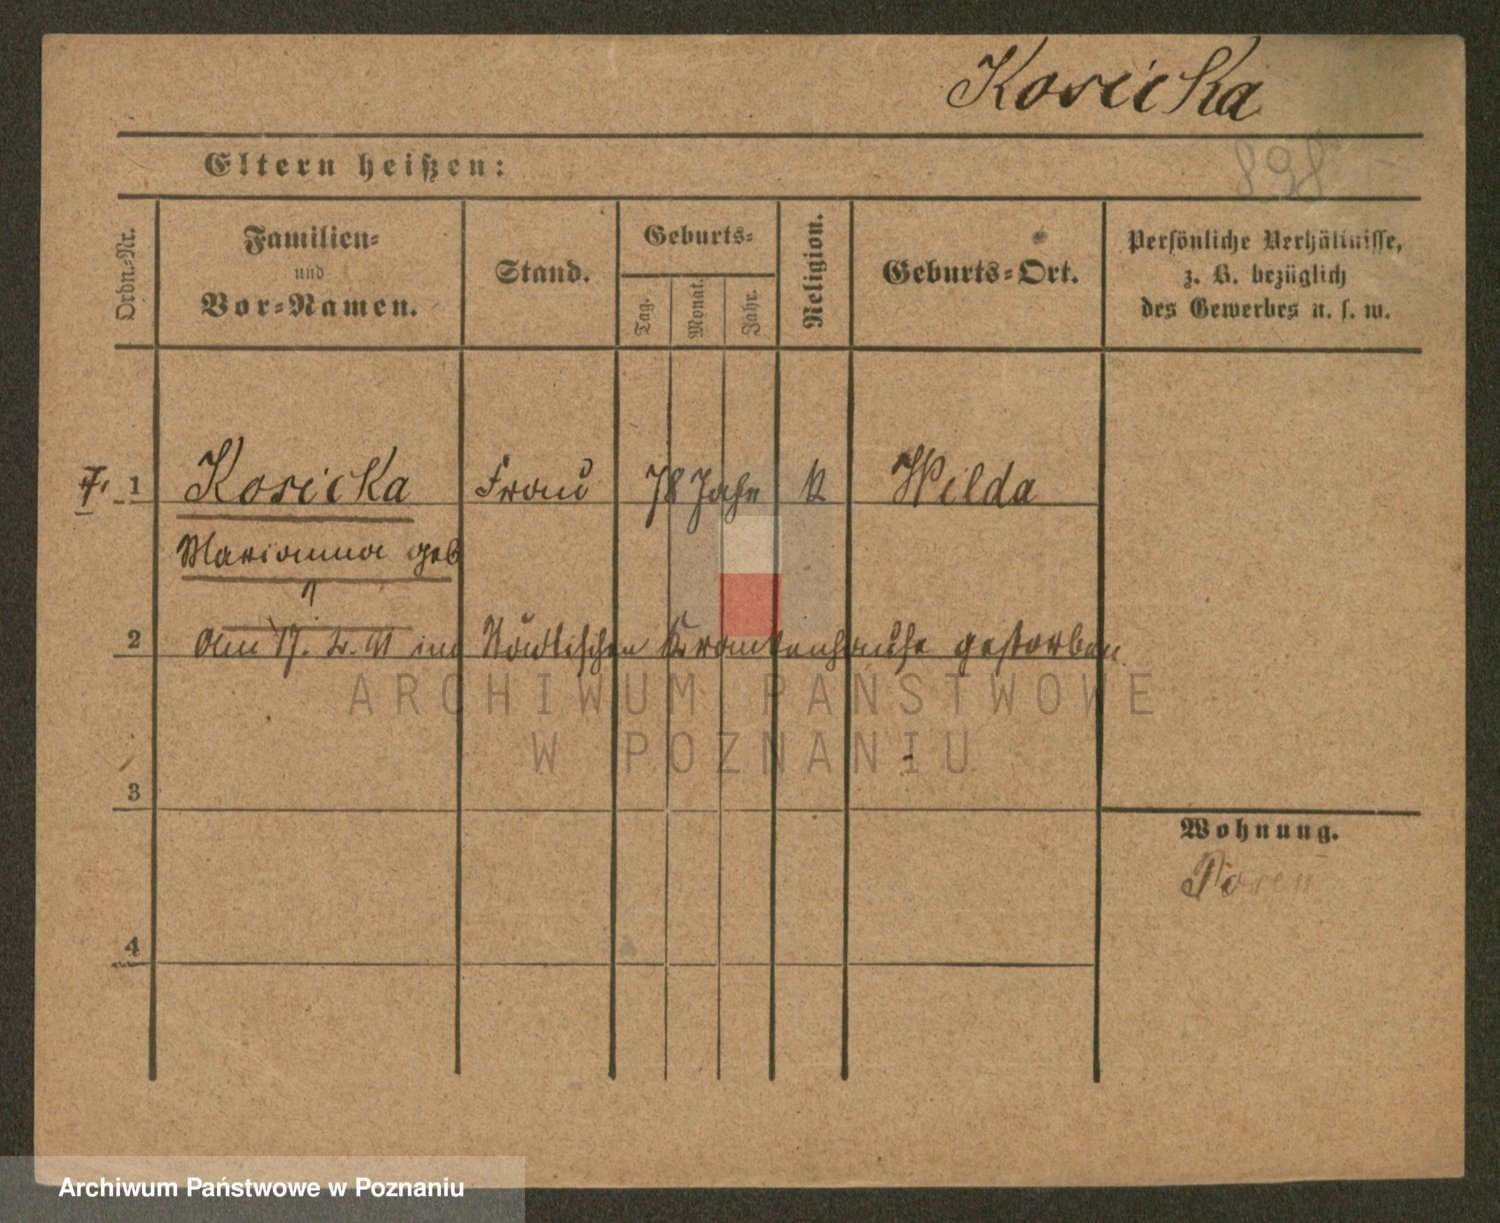 Kosicka
898
Eltern heißen:
Ordn.-Nr.
Familien-
und
Vor-Namen.
Stand.
Geburts-
Tag.
Monat.
Jahr.
Religion.
Geburts-Ort.
Persönliche Verhältnisse,
z. B. bezüglich
des Gewerbes u. s. w.
1 Kosicka Frau 78 Jahr K Wilda
Marianna geb
2 Am 17. 2. 91 im Städtischen Krankenhause gestorben
ARCHIWUM PAŃSTWOWE
W POZNANIU
3
Wohnung.
Posen
4
Archiwum Państwowe w Poznaniu